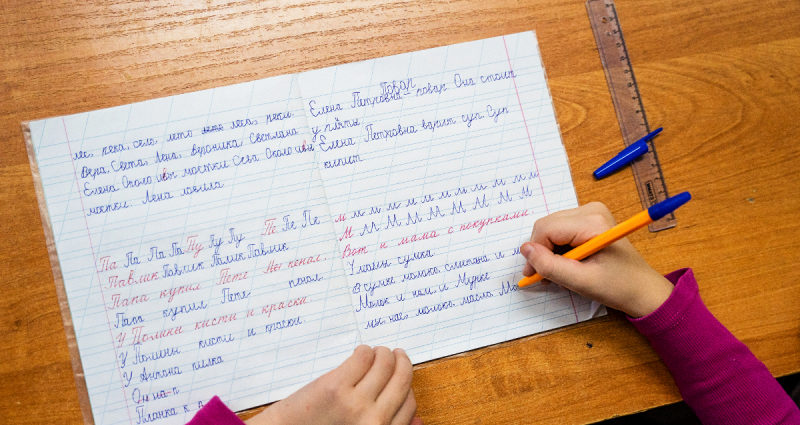 лес, река, село, лето лего леса, реки.
Вера, Света, Лена, Вероника, Светлана
Елена Около ивы мостки Сева Около ивы
мостки. Лена ловила
Па Па Па Па Пу Пу Пу Пе Пе Пе
Павлик Павлик Павлик Павлик
Папа купил Пете пенал.
Папа купил Пете пенал.
У Полины кисти и краски.
У Полины кисти и краски.
У Антона пилка
Он на п
Планка к п
Повар
Елена Петровна – повар. Она стоит
у плиты.
Елена Петровна варит суп. Суп
кипит.
м м м м м м м м м м м
М М М М М М М М
Вот и мама с покупками.
У мамы сумка.
В сумке молоко, сметана и м
Молок и нам, и Мурке
мы, нас, молоко, масло, Мо